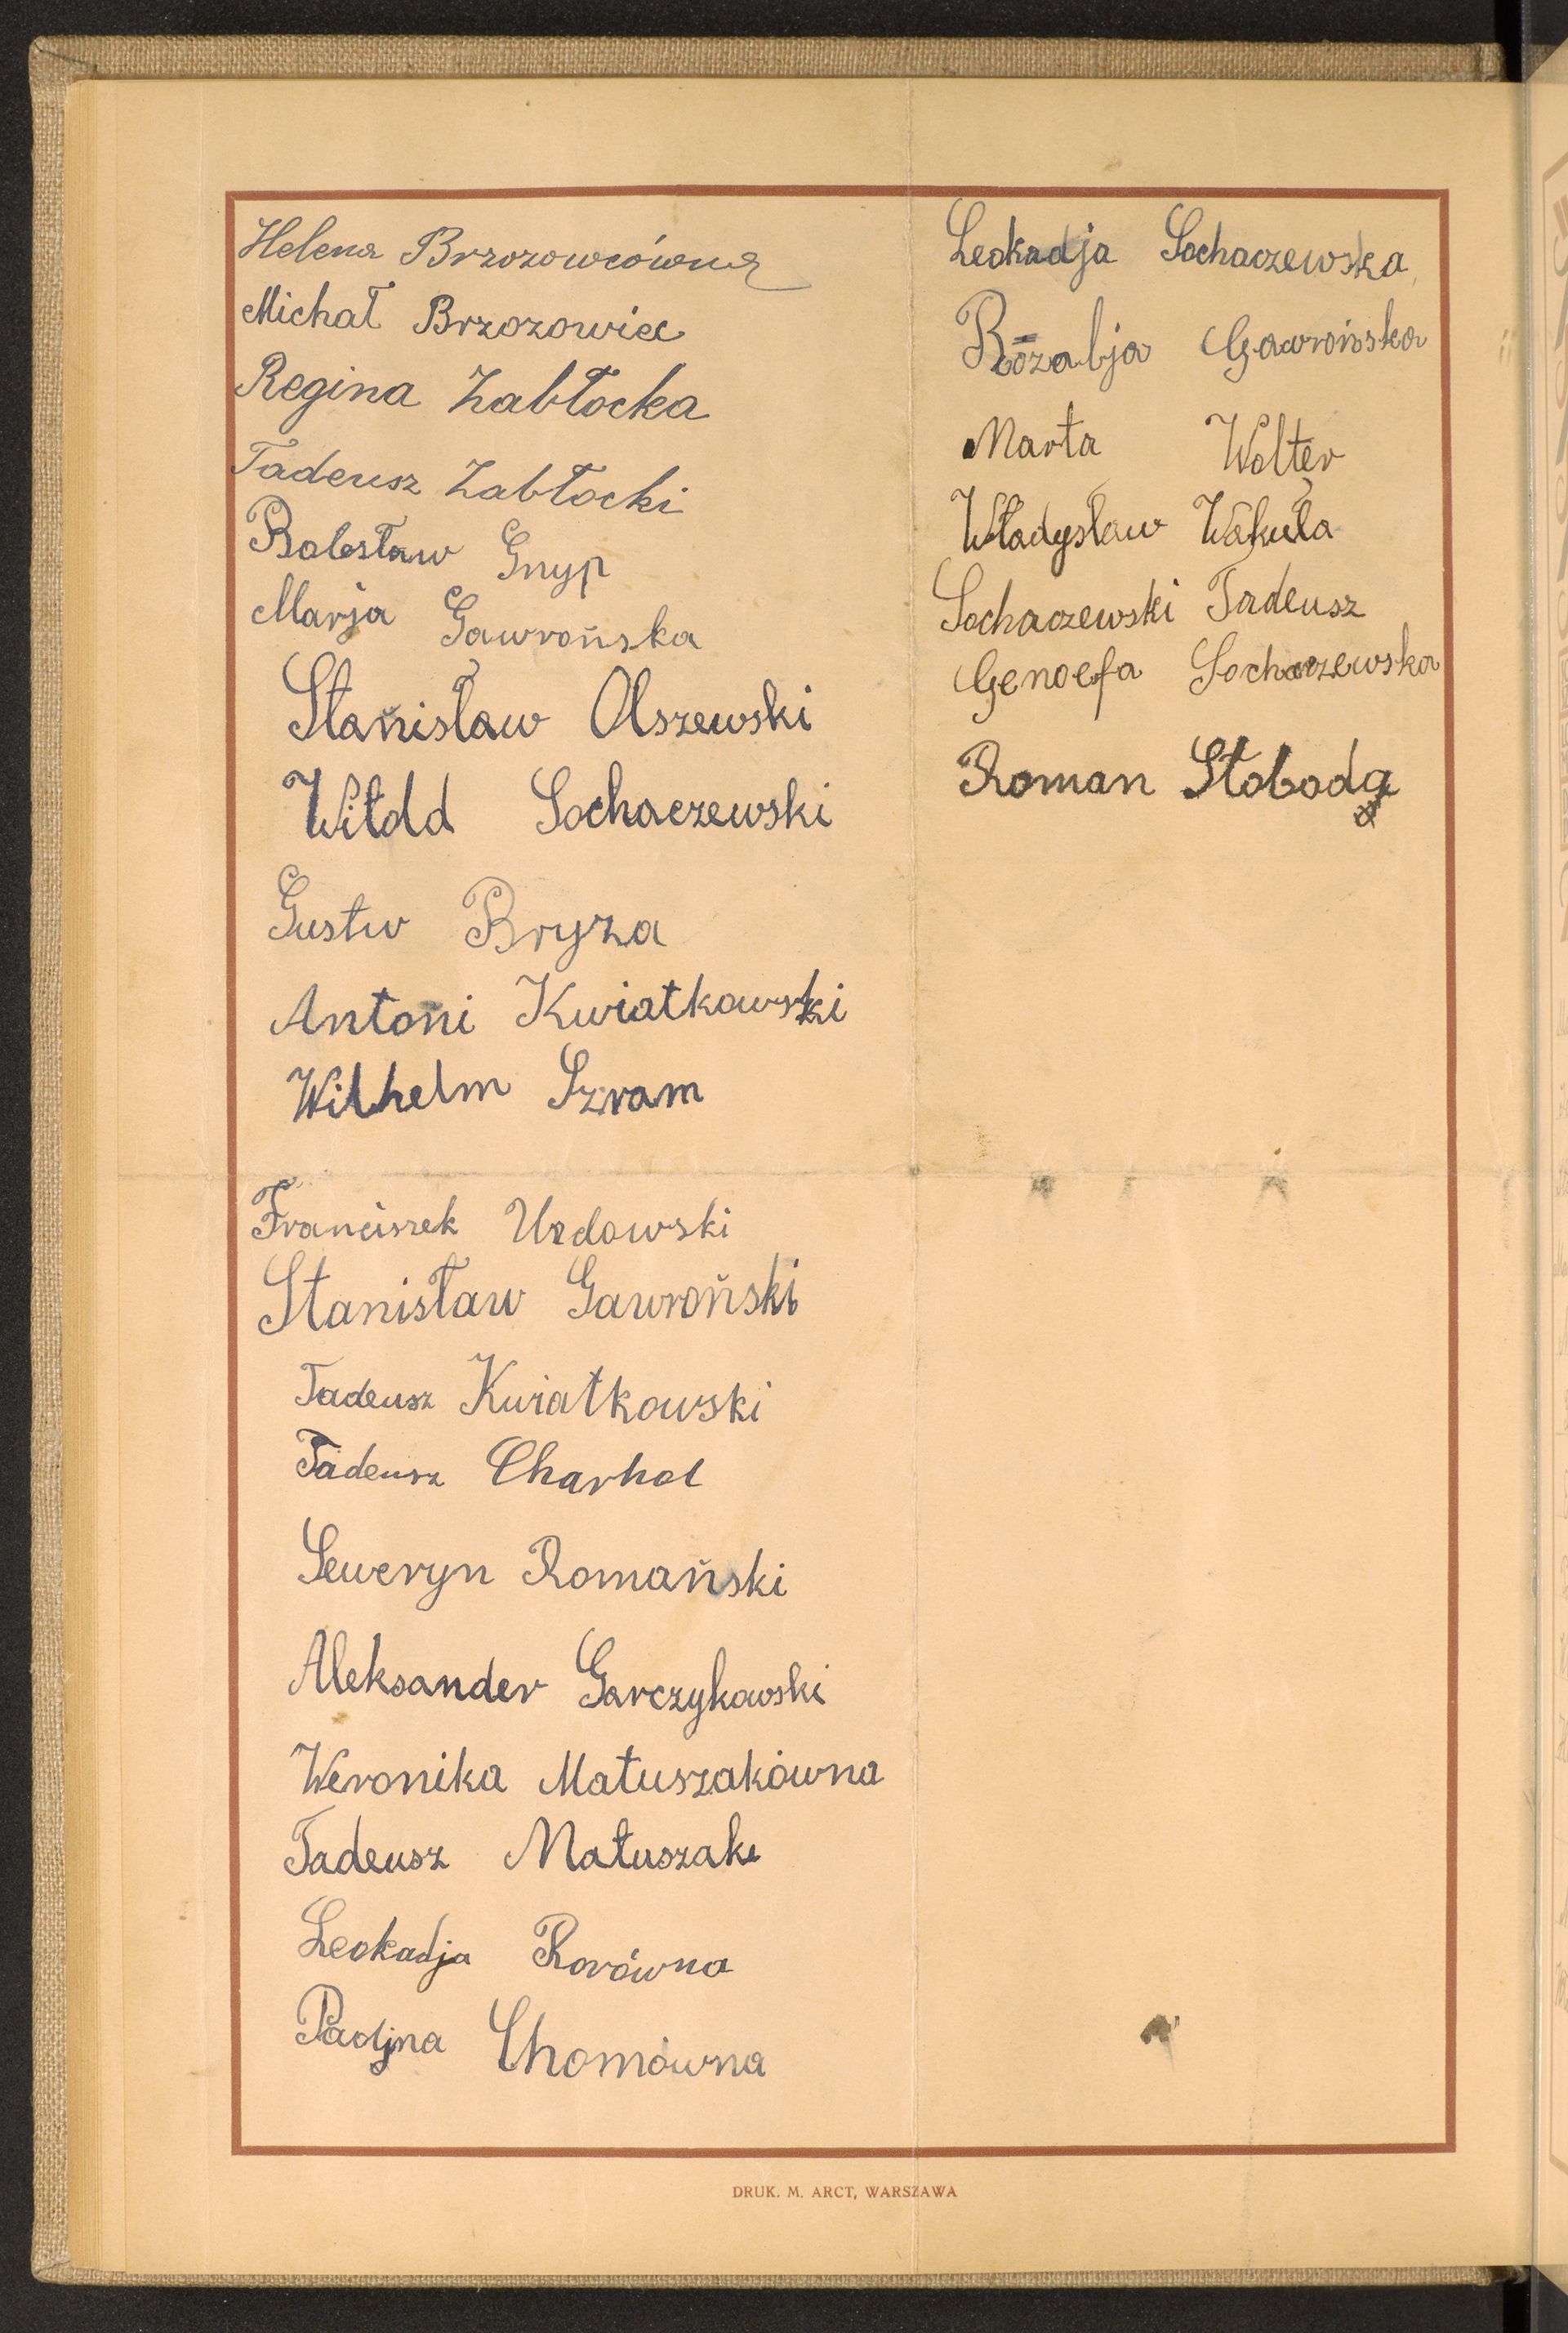 Helena Brzozowcówna
Michał Brzozowiec
Regina Zabłocka
Tadeusz Zabłocki
Bolesław Gnyp
Marja Gawrońska
Stanisław Olszewski
Witold Sochaczewski
Gustw Bryza
Antoni Kwiatkowski
Wilhelm Szram
Franciszek Uzdowski
Stanisław Gawroński
Tadeusz Kwiatkowski
Tadeusz Charhol
Seweryn Romański
Aleksander Garczykowski
Weronika Matuszakówna
Tadeusz Matuszak
Leokadja Rorówna
Paolina Chomówna
Leokadja Sochaczewska
Rozalja Gawrońska
Marta Wolter
Władysław Wakuła
Sochaczewski Tadeusz
Genoefa Sochaczewska
Roman Słoboda
DRUK. M. ARCT, WARSZAWA